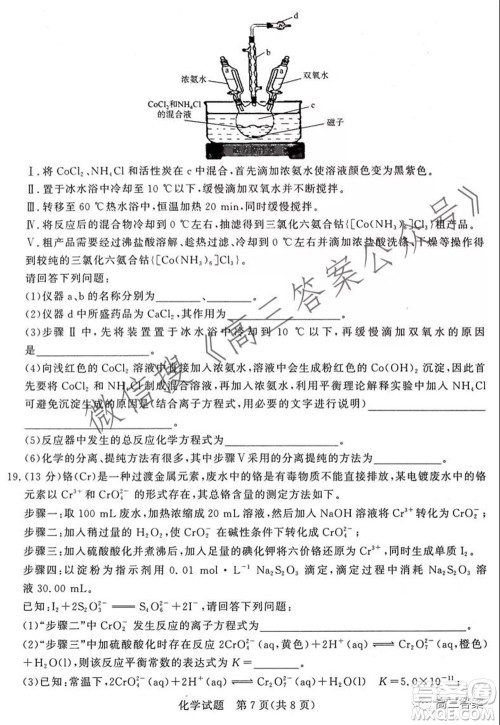 a
b
浓氨水
双氧水
a
CoCl₂和NH₄Cl
的混合液
c
磁子
Ⅰ.将 CoCl₂、NH₄Cl 和活性炭在 c 中混合,首先滴加浓氨水使溶液颜色变为黑紫色。
Ⅱ.置于冰水浴中冷却至 10 ℃以下,缓慢滴加双氧水并不断搅拌。
Ⅲ.转移至 60 ℃热水浴中,恒温加热 20 min,同时缓慢搅拌。
Ⅳ.将反应后的混合物冷却到 0 ℃左右,抽滤得到三氯化六氨合钴{[Co(NH₃)₆]Cl₃}粗产品。
Ⅴ.粗产品经过沸盐酸溶解、趁热过滤、冷却结晶、抽滤后滴加浓盐酸洗涤、干燥等操作得
到较纯的三氯化六氨合钴{[Co(NH₃)₆]Cl₃}。
请回答下列问题:
(1)仪器 a、b 的名称分别为________、________。
(2)仪器 d 中盛放的药品为 CaCl₂,其作用为________。
(3)步骤 Ⅱ 中,先将装置置于冰水浴中冷却到 10 ℃以下,再缓慢滴加双氧水的原因
是________。
(4)向浅红色的 CoCl₂ 溶液中加入浓氨水,溶液中会生成粉红色的 Co(OH)₂ 沉淀,因此首
先需在混合液中加入 NH₄Cl,再加入浓氨水,请利用平衡移动理论解释实验中加入 NH₄Cl
可避免沉淀生成的原因是(结合离子方程式,用必要的文字说明)________
________。
(5)反应器中发生的总反应化学方程式为________。
(6)化学的分离、提纯方法有很多,其中步骤 Ⅴ 采用的分离提纯的方法为________。
19.(13 分)铬(Cr)是一种过渡金属元素,废水中的铬是有毒物质不能直接排放,某电镀废水中的铬
元素以 Cr³⁺ 和 CrO₄²⁻ 的形式存在,其总铬含量测定方法如下:
步骤一:取 100 mL 废水,加热浓缩成 20 mL 溶液,然后加入 NaOH 溶液将 Cr³⁺ 变成 CrO₂⁻。
步骤二:加入稍过量的 H₂O₂,使 CrO₂⁻ 在碱性条件下转化为 CrO₄²⁻。
步骤三:加入硫酸酸化并煮沸后,加入足量的碘化钾将六价铬还原为 Cr³⁺,同时生成 I₂。
步骤四:以淀粉为指示剂用 0.01 mol·L⁻¹ Na₂S₂O₃ 滴定,滴定终点时,消耗 Na₂S₂O₃ 溶
液 30.00 mL。
已知:I₂+2S₂O₃²⁻══S₄O₆²⁻+2I⁻,请回答下列问题:
(1)“步骤二”中发生反应的离子方程式为________。
(2)“步骤三”中加硫酸酸化时存在反应 2CrO₄²⁻(aq,黄色)+2H⁺(aq)⇌Cr₂O₇²⁻(aq,橙色)
+H₂O(l),则该反应平衡常数的表达式为 K=________。
(3)已知:2CrO₄²⁻(aq)+2H⁺(aq)⇌Cr₂O₇²⁻(aq)+H₂O(l) K=5.0×10⁻¹¹
化学试题 第 7 页(共 8 页)
微信搜《高三答案公众号》
高三答案